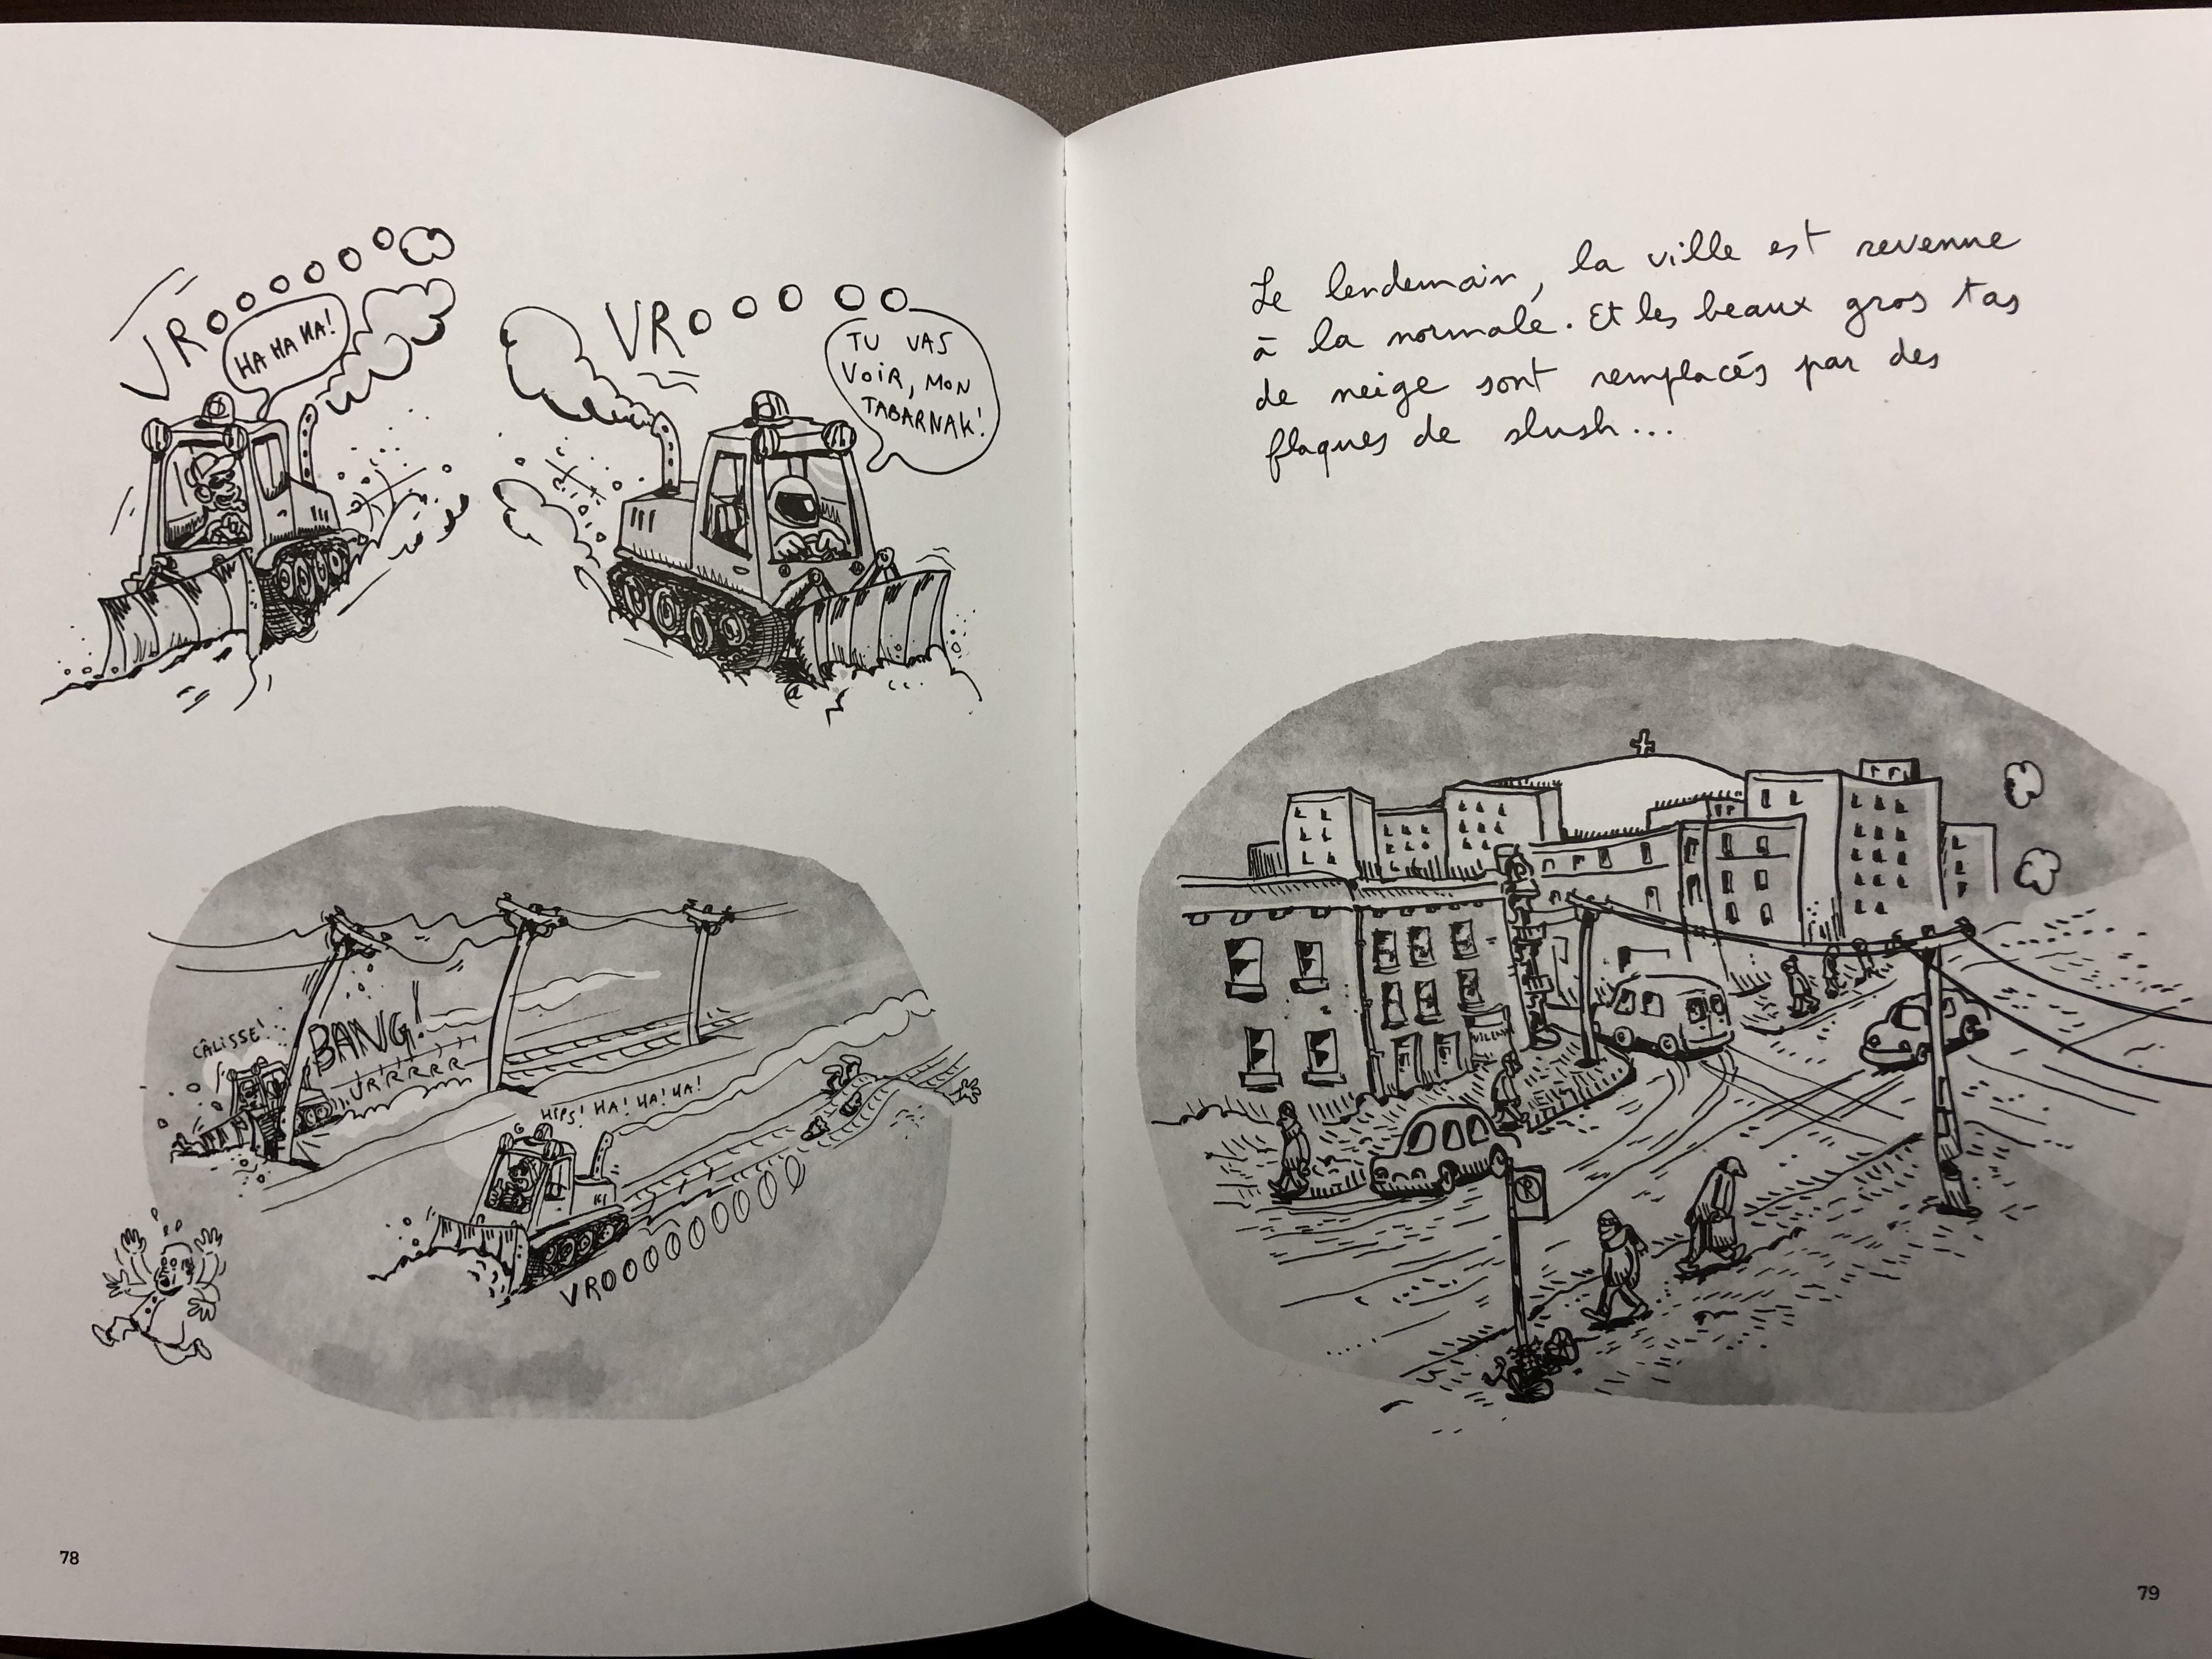 VROOOOOO
HA HA HA!
VROOOOO
TU VAS
VOIR, MON
TABARNAK!
CÂLISSE!
BANG!
VRRRRRR
HIPS! HA! HA! HA!
VROOOOOOOOO
78
Le lendemain, la ville est revenue
à la normale. Et les beaux gros tas
de neige sont remplacés par des
flaques de slush...
P
79